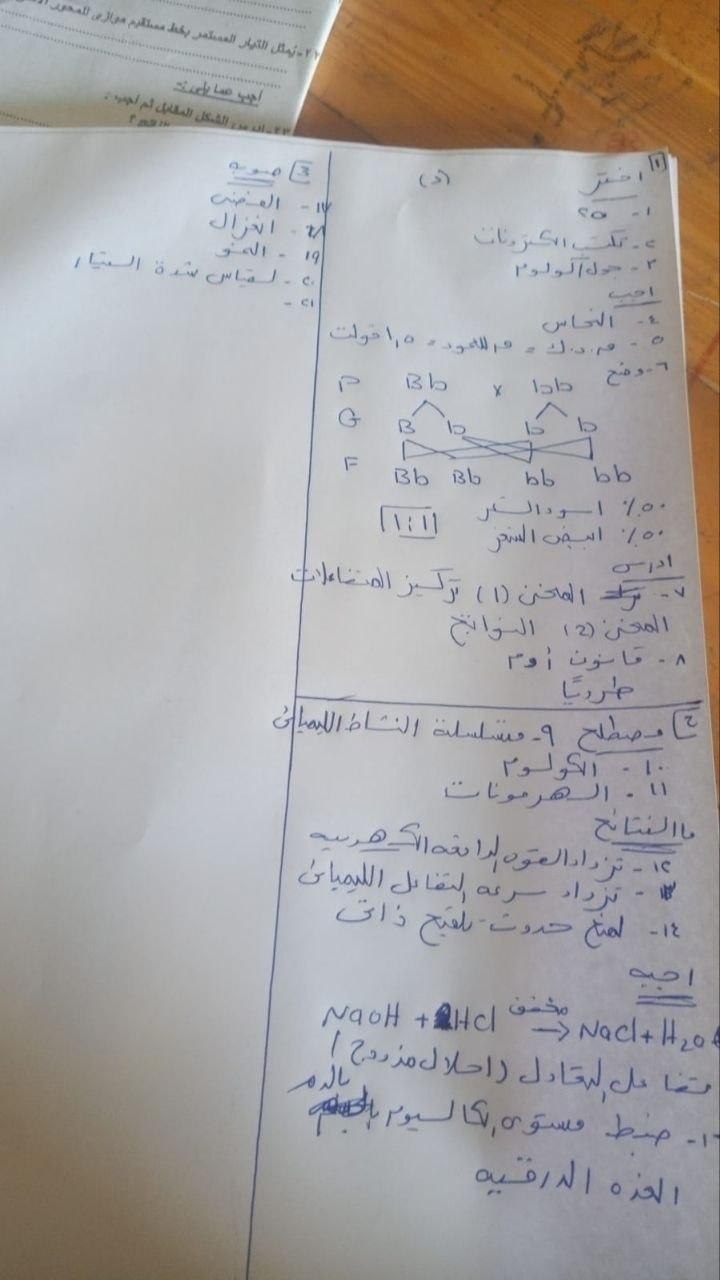 ٢٢- يمثل التيار المستمر بخط مستقيم موازى للمحور
اجب عما يلى :-
٢٣- ادرس الشكل المقابل ثم اجب :
(٥)
١ اختر
١- ٢٥
٢- تكتسب الكترونات
٣- جول/كولوم
اجب
٤- النحاس
٥- ق.د.ك = للعمود = ١,٥ فولت
٦- وضح
P Bb x bb
G B b b b
F Bb Bb bb bb
٥٠٪ اسود الشعر
٥٠٪ ابيض الشعر
١:١
ادرس
٧- المنحنى (1) تركيز المتفاعلات
المنحنى (2) النواتج
٨- قانون أوم
طرديًا
٢ مصطلح ٩- متسلسلة النشاط الكيميائى
١٠- الكولوم
١١- الهرمونات
ما النتائج
١٢- تزداد القوه الدافعه الكهربيه
- تزداد سرعه التفاعل الكيميائى
١٤- لمنع حدوث تلقيح ذاتى
اجب
NaOH + HCl مخفف → NaCl + H2O
تفاعل التعادل (احلال مزدوج)
١٦- ضبط مستوى الكالسيوم بالدم
الغده الدرقيه
3 صوب
١٧- الفضى
١٨- اختزال
١٩- النمو
٢٠- لقياس شدة التيار
٢١-